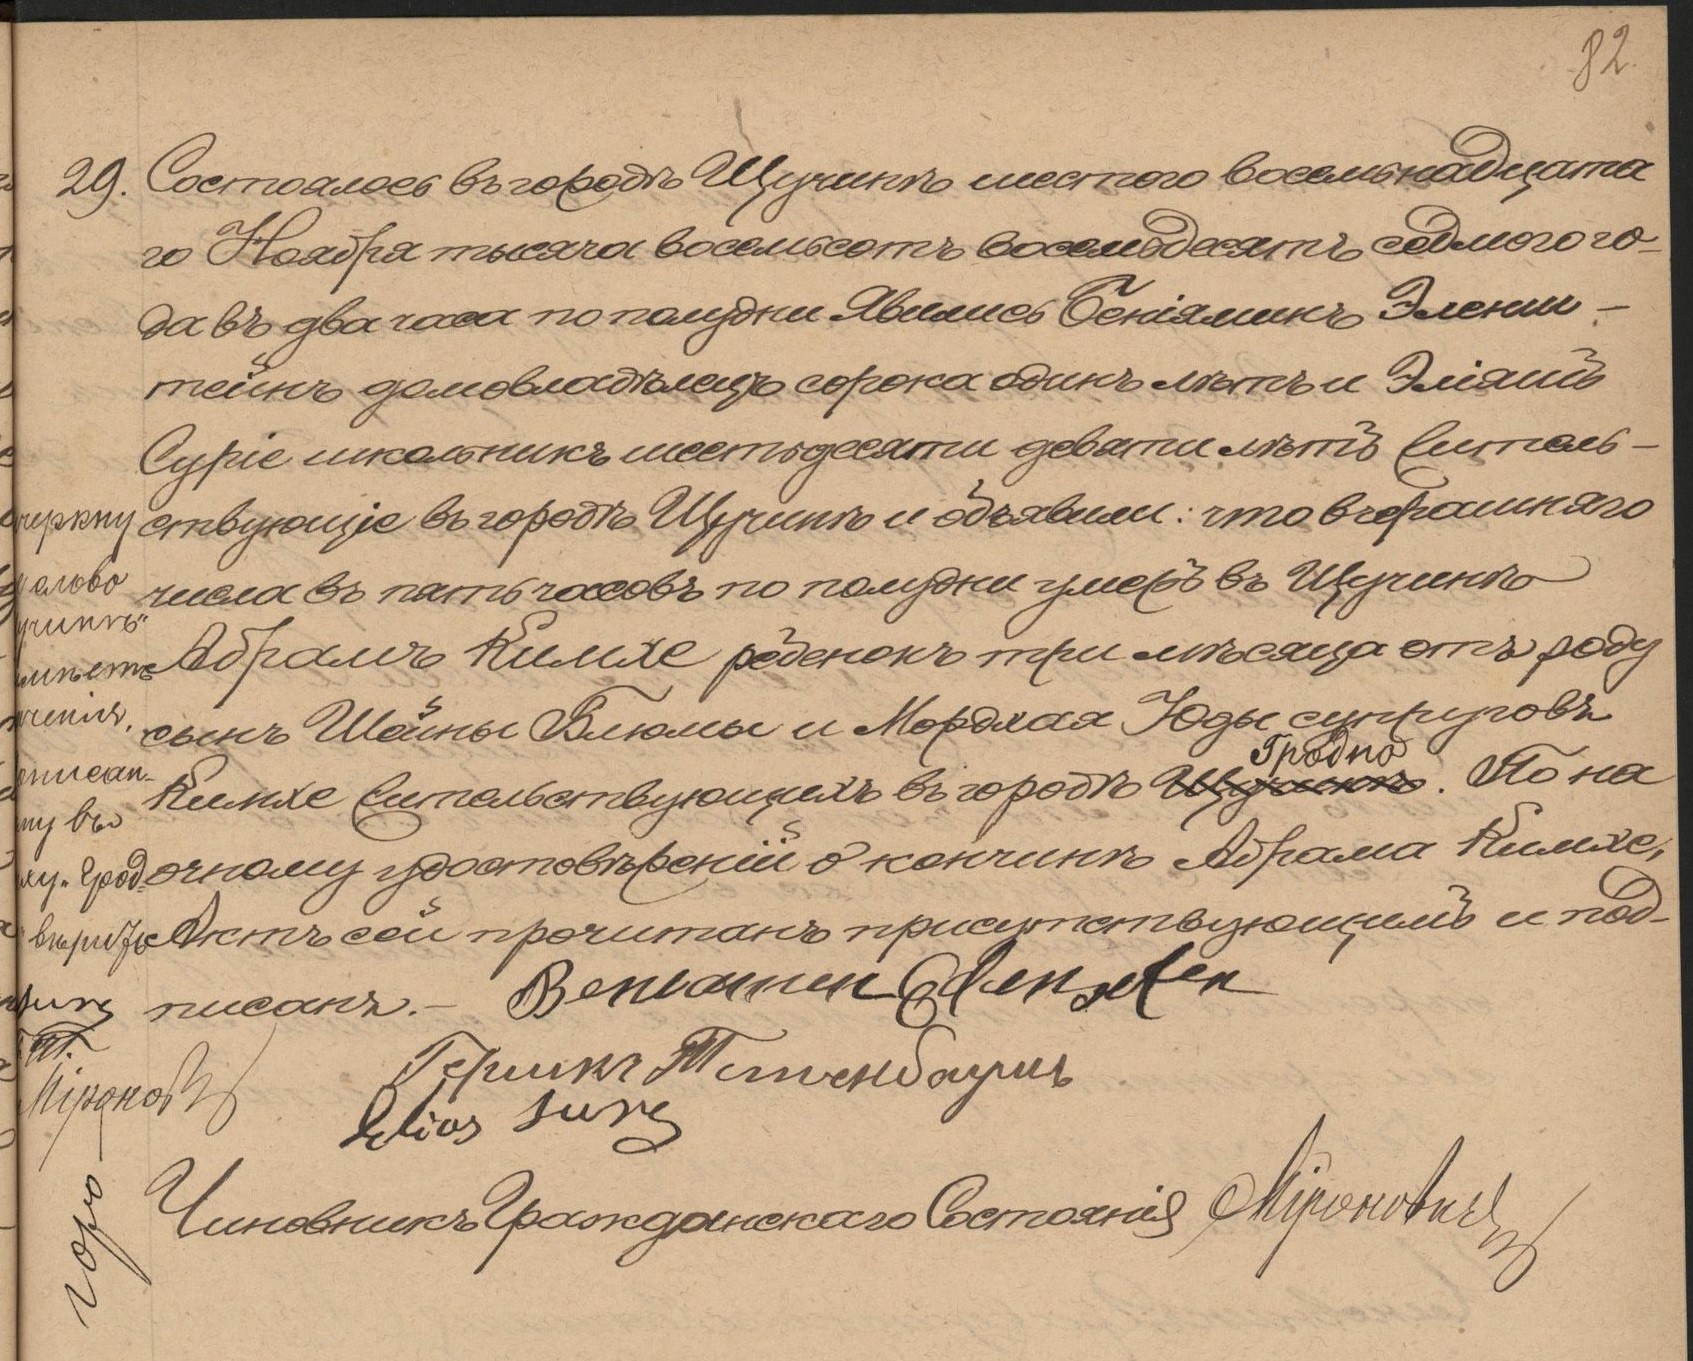 82.
29. Состоялось въ городѣ Щучинѣ шестого восемьнадцата
го Ноября тысяча восемьсотъ восемьдесятъ седмого го-
да въ два часа по полудни Явились Беніяминъ Элени-
тейнъ домовладѣлецъ сорока одинъ лѣтъ и Эліяшъ
Суріе школьникъ шестьдесяти девяти лѣтъ Жительь-
ствующіе въ городѣ Щучинѣ и объявили: что вчерашняго
числа въ пять часовъ по полудни умеръ въ Щучинѣ
Абрамъ Кимхе ребенокъ три мѣсяца отъ роду
сынъ Шейны Блюмы и Мордхая Юды супруговъ
Гродно
Кимхе Жительствующихъ въ городѣ Щучинѣ. По на
очному удостовѣреній о кончинѣ Абрама Кимхе,
Актъ сей прочитанъ присутствующимъ и под-
писанъ.-
черкну
слово
учинѣ"
писан
ну въ
ху "Грод
Чиновникъ Гражданскаго Состоянія Міроновичъ